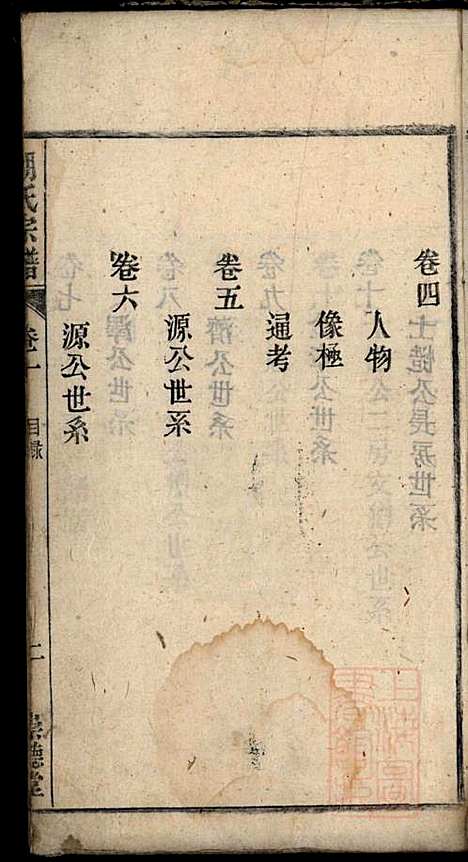 卷四
人物
像極
通考
卷五
源公世系
卷六
源公世系
周氏宗譜
卷一
目錄
二
崇德堂